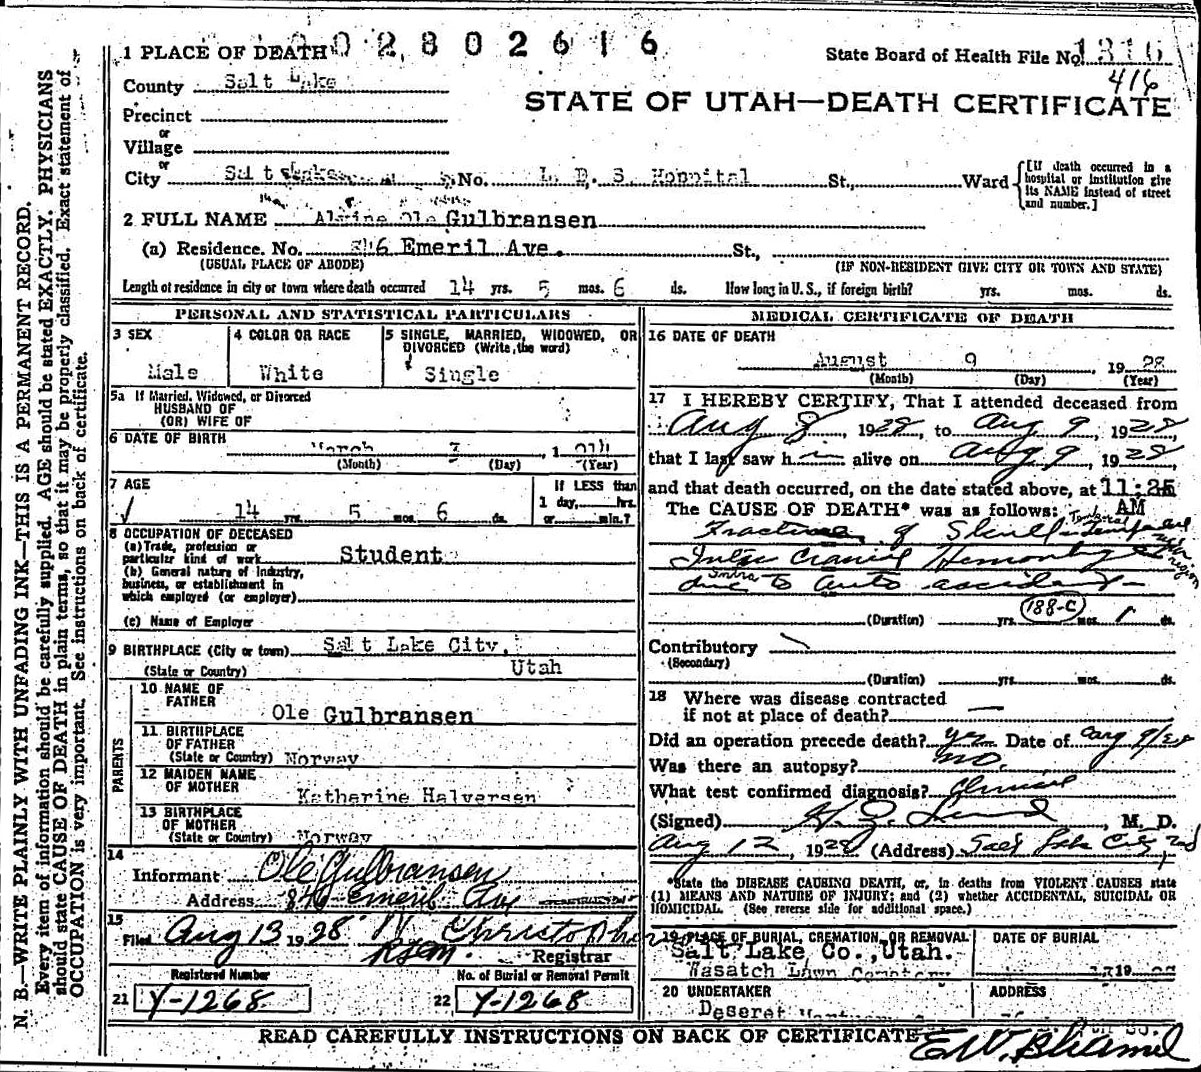 N. B.—WRITE PLAINLY WITH UNFADING INK—THIS IS A PERMANENT RECORD.
Every item of information should be carefully supplied. AGE should be stated EXACTLY. PHYSICIANS
should state CAUSE OF DEATH in plain terms, so that it may be properly classified. Exact statement of
OCCUPATION is very important. See instructions on back of certificate.
0 2 8 0 2 6 1 6
1 PLACE OF DEATH
State Board of Health File No. 1316
416
County Salt Lake
STATE OF UTAH—DEATH CERTIFICATE
Precinct
or
Village
or
City Salt Lake No. L. D. S. Hospital St., Ward
[If death occurred in a
hospital or institution give
its NAME instead of street
and number.]
2 FULL NAME Ole Gulbransen
(a) Residence. No. 846 Emeril Ave. St.,
(USUAL PLACE OF ABODE) (IF NON-RESIDENT GIVE CITY OR TOWN AND STATE)
Length of residence in city or town where death occurred 14 yrs. 5 mos. 6 ds. How long in U. S., if foreign birth? yrs. mos. ds.
PERSONAL AND STATISTICAL PARTICULARS
3 SEX
Male
4 COLOR OR RACE
White
5 SINGLE, MARRIED, WIDOWED, OR
DIVORCED (Write the word)
Single
5a If Married, Widowed, or Divorced
HUSBAND OF
(OR) WIFE OF
6 DATE OF BIRTH
March 3, 1914
(Month) (Day) (Year)
7 AGE
14 yrs. 5 mos. 6 ds.
If LESS than
1 day, hrs.
or min.?
8 OCCUPATION OF DECEASED
(a) Trade, profession or
particular kind of work Student
(b) General nature of Industry,
business, or establishment in
which employed (or employer)
(c) Name of Employer
9 BIRTHPLACE (City or town) Salt Lake City,
(State or Country) Utah
PARENTS
10 NAME OF
FATHER
Ole Gulbransen
11 BIRTHPLACE
OF FATHER
(State or Country) Norway
12 MAIDEN NAME
OF MOTHER
Katherine Halversen
13 BIRTHPLACE
OF MOTHER
(State or Country) Norway
14
Informant Ole Gulbransen
Address 846 Emeril Ave
15
Filed Aug 13 1928
Registrar
Registered Number
21 Y-1268
No. of Burial or Removal Permit
22 Y-1268
MEDICAL CERTIFICATE OF DEATH
16 DATE OF DEATH
August 9, 1928
(Month) (Day) (Year)
17 I HEREBY CERTIFY, That I attended deceased from
Aug 8, 1928, to Aug 9, 1928
that I last saw him alive on Aug 9, 1928
and that death occurred, on the date stated above, at 11:25
AM
The CAUSE OF DEATH* was as follows:
Fracture of Skull temporal
region
Cranial Hemorrhage
due to auto accident
(Duration) yrs. 188-C mos. 1 ds.
Contributory
(Secondary)
(Duration) yrs. mos. ds.
18 Where was disease contracted
if not at place of death?
Did an operation precede death? yes Date of Aug 9/28
Was there an autopsy? no.
What test confirmed diagnosis? Clinical
(Signed) , M. D.
Aug 12, 1928 (Address) Salt Lake City
*State the DISEASE CAUSING DEATH, or, in deaths from VIOLENT CAUSES state
(1) MEANS AND NATURE OF INJURY; and (2) whether ACCIDENTAL, SUICIDAL OR
HOMICIDAL. (See reverse side for additional space.)
19 PLACE OF BURIAL, CREMATION, OR REMOVAL
Salt Lake Co., Utah.
Wasatch Lawn Cemetery
DATE OF BURIAL
19
20 UNDERTAKER
Deseret
ADDRESS
READ CAREFULLY INSTRUCTIONS ON BACK OF CERTIFICATE